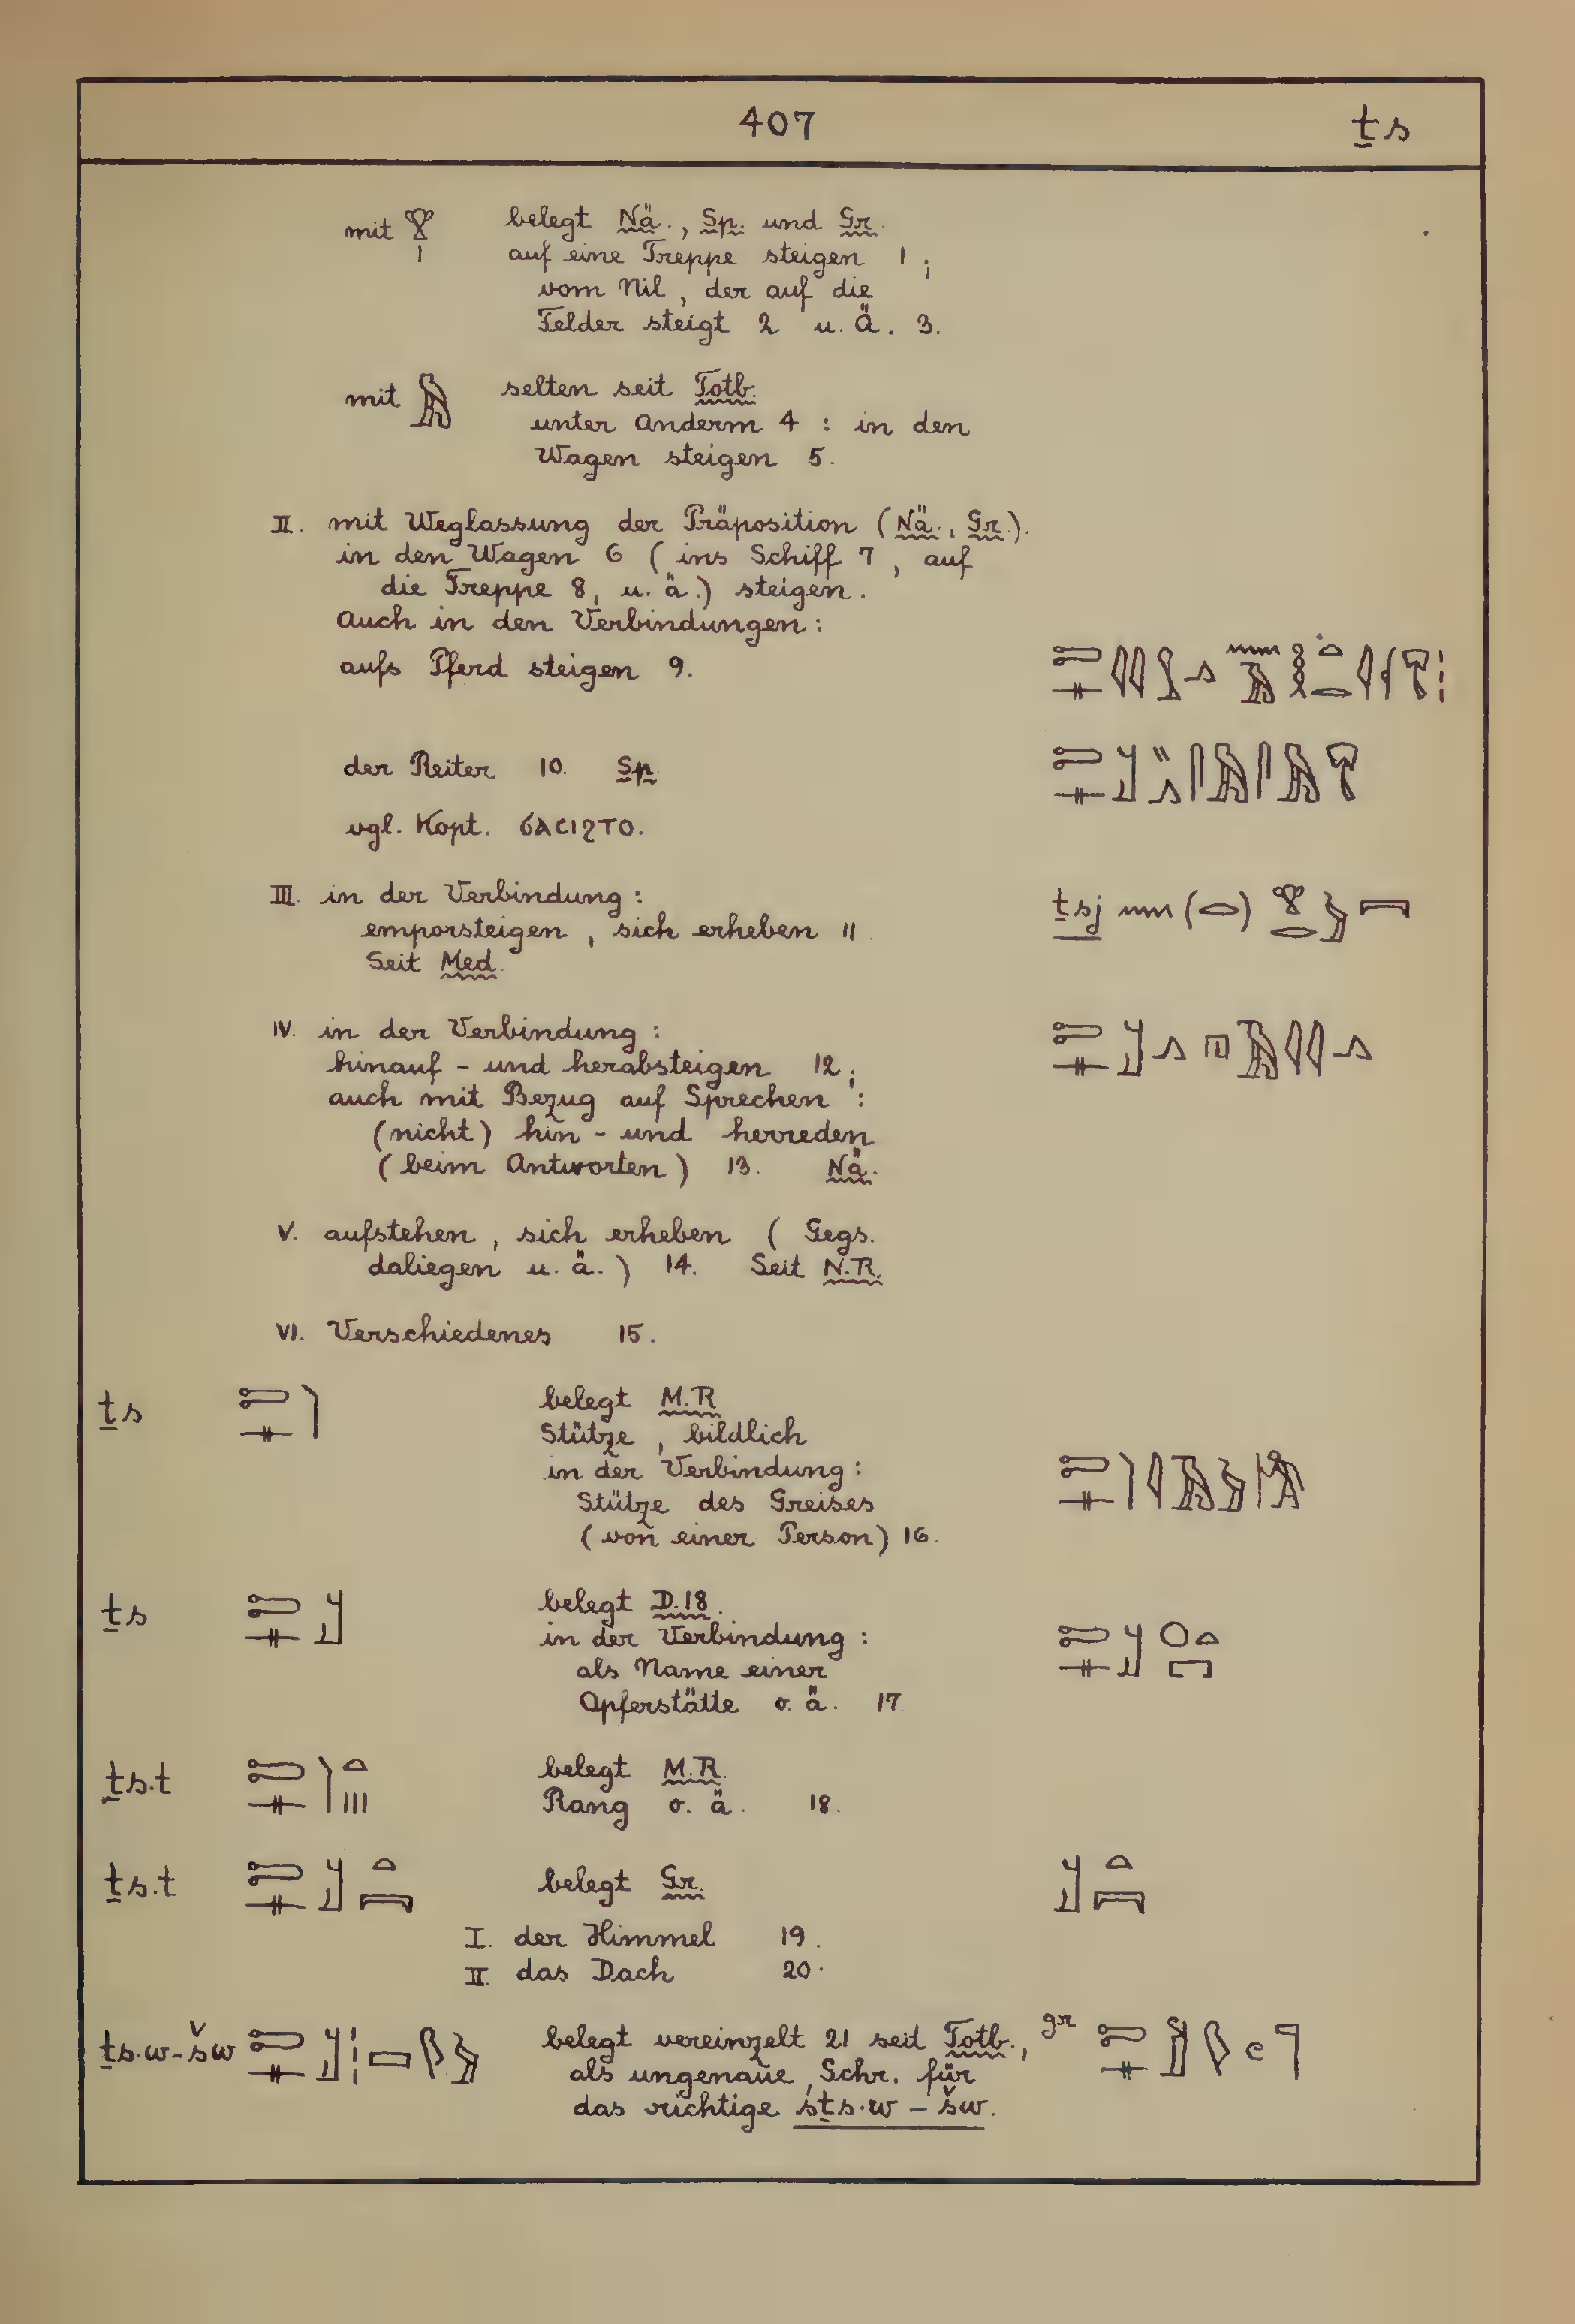 407 ṯs
mit 𓁷𓏤 belegt Nä., Sp. und Gr.
auf eine Treppe steigen 1 ;
vom Nil, der auf die
Felder steigt 2 u. Ä. 3.
mit 𓅓 selten seit Totb.
unter Anderm 4 : in den
Wagen steigen 5.
II. mit Weglassung der Präposition (Nä., Gr.).
in den Wagen 6 ( ins Schiff 7, auf
die Treppe 8, u. ä.) steigen.
Auch in den Verbindungen:
aufs Pferd steigen 9.
der Reiter 10. Sp.
vgl. Kopt. ϭⲁⲥⲓϩⲧⲟ.
III. in der Verbindung: ṯsj
emporsteigen, sich erheben 11.
Seit Med.
IV. in der Verbindung:
hinauf- und herabsteigen 12;
auch mit Bezug auf Sprechen :
(nicht) hin- und herreden
(beim Antworten) 13. Nä.
V. aufstehen, sich erheben ( Gegs.
daliegen u. ä. ) 14. Seit N.R.
VI. Verschiedenes 15.
ṯs belegt M.R.
Stütze, bildlich
in der Verbindung:
Stütze des Greises
(von einer Person) 16.
ṯs belegt D.18.
in der Verbindung:
als Name einer
Opferstätte o. ä. 17.
ṯs.t belegt M.R.
Rang o. ä. 18.
ṯs.t belegt Gr.
I. der Himmel 19.
II. das Dach 20.
ṯs.w-šw belegt vereinzelt 21 seit Totb., gr
als ungenaue Schr. für
das richtige sṯs.w – šw.